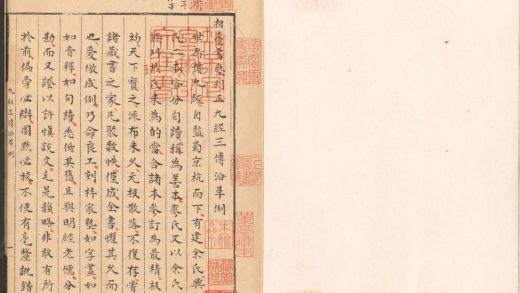 相臺書塾刊正九經三傳沿革例
世所傳九經自監蜀京杭而下有建余氏興
氏二本皆分句讀稱為善本廖氏又以余氏
誤舛于氏未為的當合諸本參訂為最精板
初天下寶之流布未久元板散落不復存嘗
諸藏書之家凡聚數帙僅成全書懼其久而
也爰倣成例乃命良工刻梓家塾如字畫如
如音釋如句讀悉循其舊且與明經老儒分
勘而又證以許慎說文毛晃韻略非敢有所
於前偏旁必辯圈點必校不使有毫釐訛錯
九經三傳沿革例
一